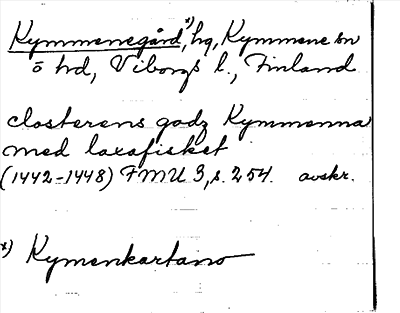 Kymmenegård *), hg, Kymmene sn
ö hd, Viborgs l., Finland
closterens godz Kymmenna
med laxafisket
(1442-1448) FMU 3, s. 254. avskr.
*) Kymenkartano